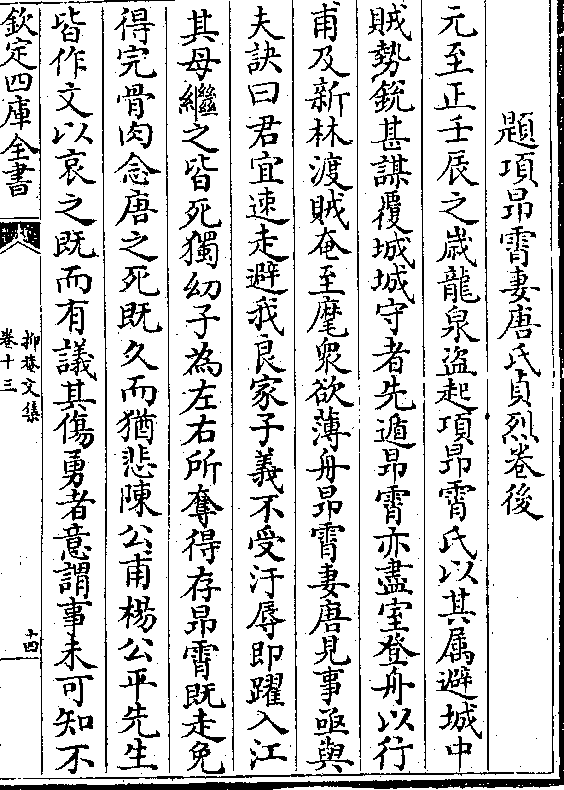 題項昂霄妻唐氏貞烈卷後
元至正壬辰之歲龍泉盜起項昂霄氏以其屬避城中
賊勢銳甚謀覆城城守者先遁昂霄亦盡室登舟以行
甫及新林渡賊奄至麾衆欲薄舟昂霄妻唐見事亟與
夫訣曰君宜速走避我良家子義不受汙辱即躍入江
其母繼之皆死獨幼子為左右所奪得存昂霄既走免
得完骨肉念唐之死既久而猶悲陳公甫楊公平先生
皆作文以哀之既而有議其傷勇者意謂事未可知不
欽定四庫全書
抑菴文集
卷十三
十四